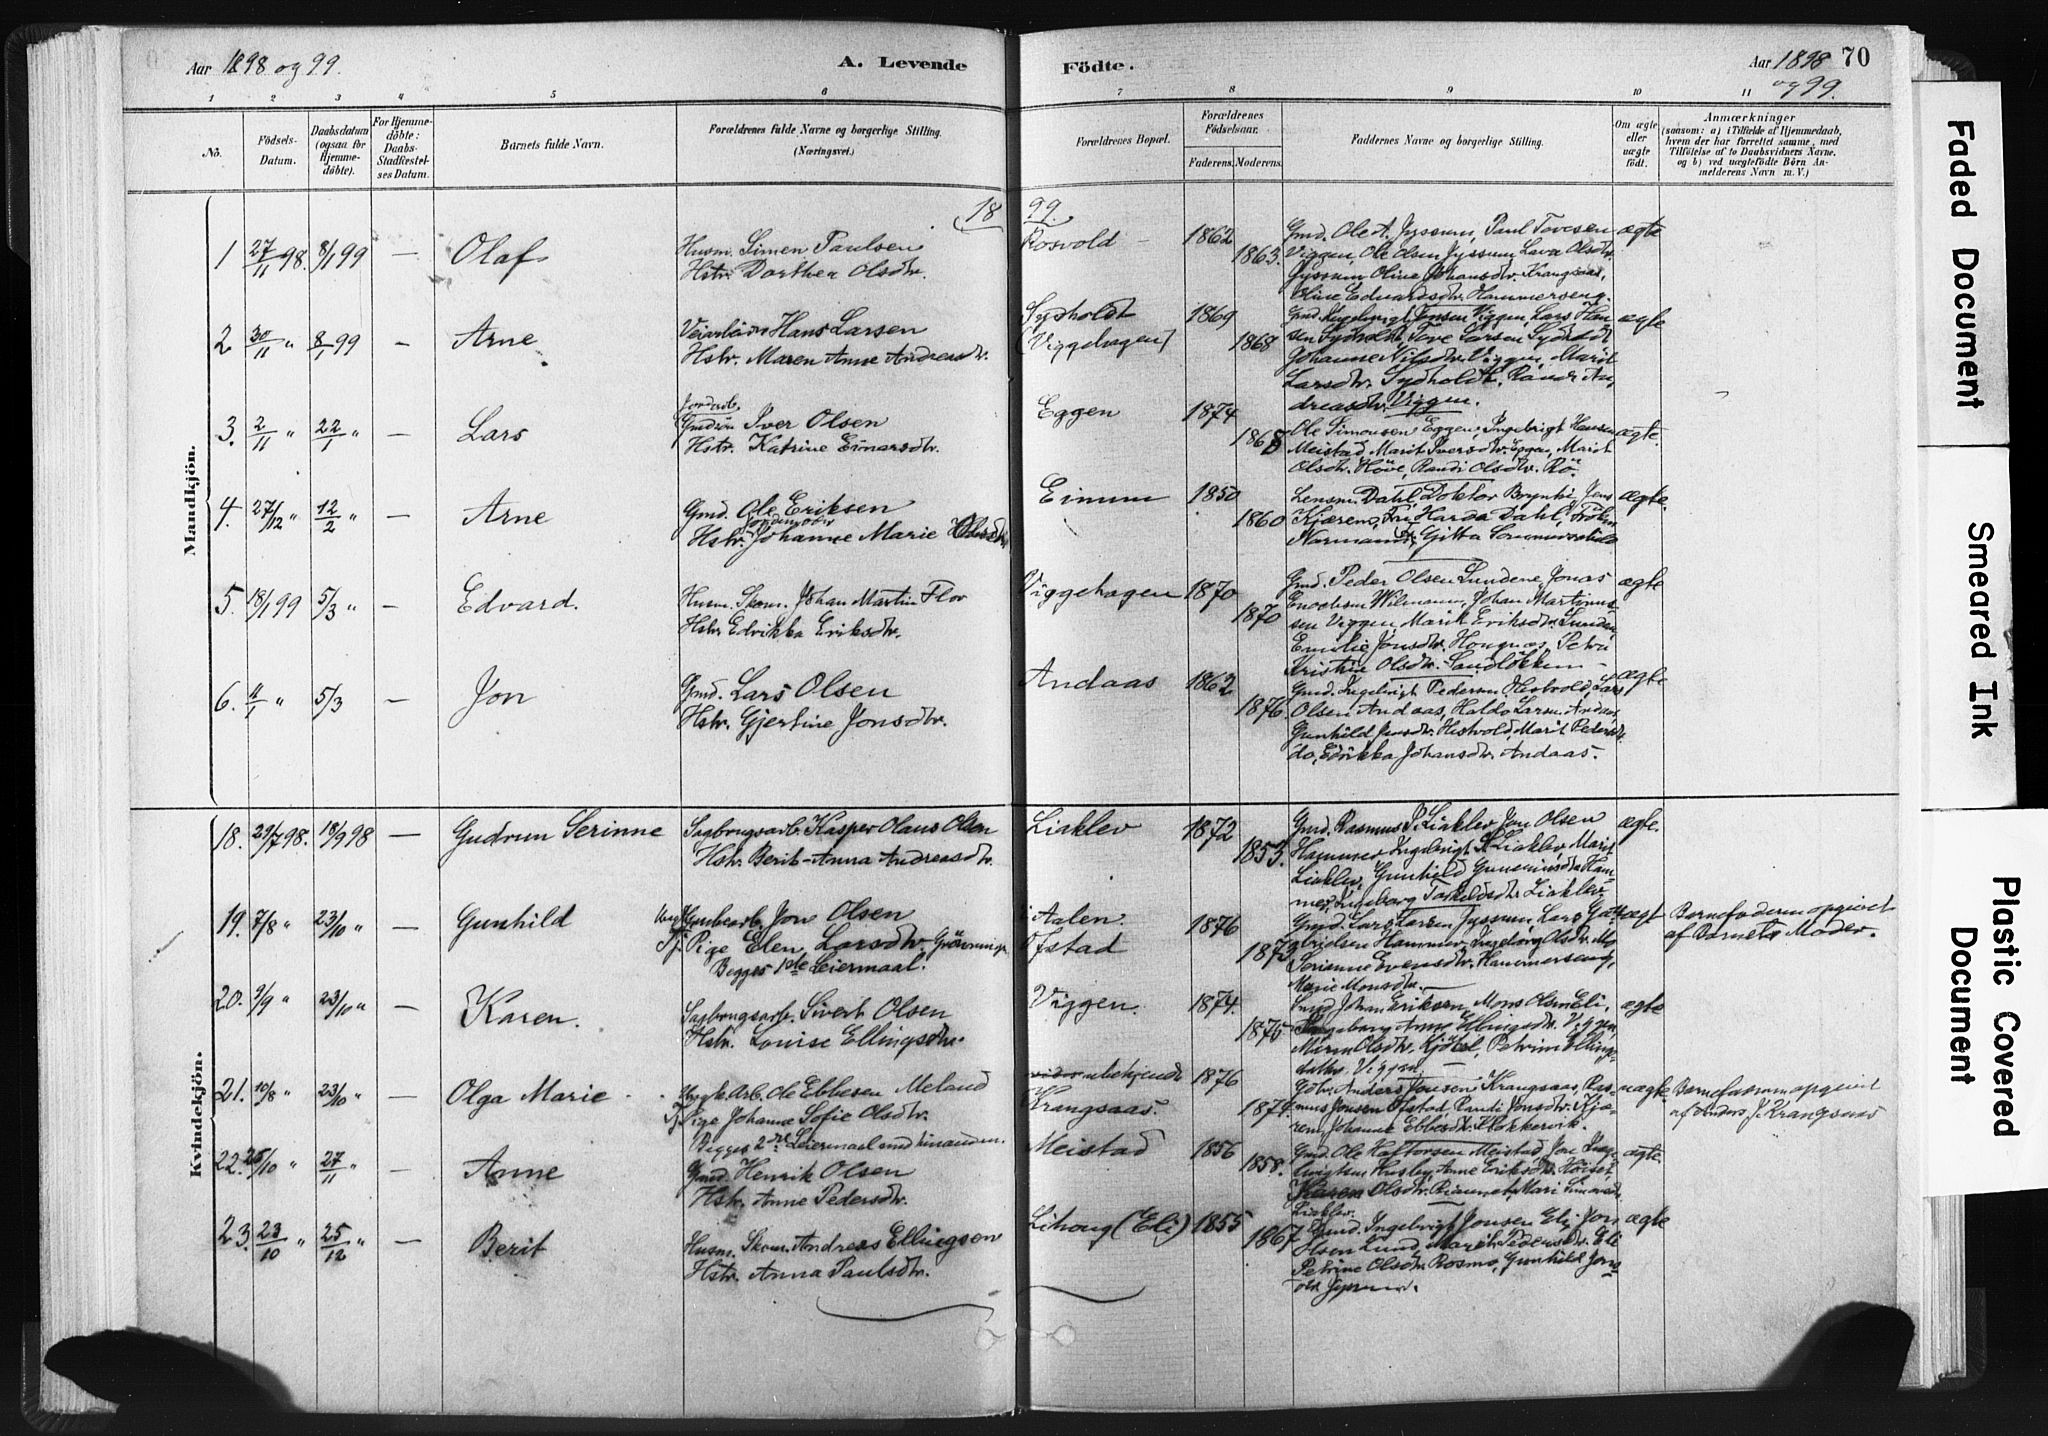 Aar 1898 og 99.
A. Levende
Födte.
Aar 1898 og 99.
70
1 2 3 4 5 6 7 8 9 10 11
No.
Födsels-Datum.
Daabsdatum (ogsaa for Hjemmedöbte).
For Hjemmedöbte: Daabs-Stadfestelses Datum.
Barnets fulde Navn.
Forældrenes fulde Navne og borgerlige Stilling. (Næringsvei.)
Forældrenes Bopæl.
Forældrenes Födselsaar.
Faderens. Moderens.
Faddernes Navne og borgerlige Stilling.
Om ægte eller uægte födt.
Anmærkninger
(saasom: a) i Tilfælde af Hjemmedaab,
hvem der har forrettet samme, med
Tilföielse af to Daabsvidners Navne,
og b) ved uægtefödte Börn An-
melderens Navn m. V.)
Mandkjön.
18 99.
1 27/11 98. 8/1 99 — Olaf
Husm. Simen Paulsen
Hstr. Dorthea Olsdtr.
Rosvold 1862 1863.
Gmd. Ole A. Jyssum, Paul Tovesen
Viggen, Ole Olsen Jyssum, Olsdtr.
Jyssum Oline Johansdtr. Krangsaas,
Oline Edvardsdtr. Hammerseng.
ægte
2 30/11 " 8/1 99 — Arne
Veiarbeider Hans Larsen
Hstr. Maren Anne Andreasdtr.
Sydholdt
(Viggehagen) 1869 1868
Gmd. Ingebrigt Jonsen Viggen, Lars Han-
sen Sydholdt, Tove Larsen Sydholdt
Johanne Nilsdtr. Viggen, Marit
Larsdtr. Sydholdt, Randi An-
dreasdtr. Viggen.
ægte
3. 2/11 " 22/1 " — Lars
Iver Olsen
Hstr. Katrine Einarsdtr.
Eggen 1874 1868
Ole Simonsen Eggen, Ingebrigt Hansen
Meistad, Marit Iversdtr. Eggen, Marit
Olsdtr. Höve, Randi Olsdtr. Rö.
ægte.
4. 27/12 " 12/2 " — Arne
Gmd. Ole Eriksen
Hstr. Johanne Marie
Einum 1850 1860
Lensm. Dahl, Doktor Brynhi, Jens
Kjærem, Fru Harda Dahl, Frökn
Gitta
ægte.
5. 18/1 99 5/3 " — Edvard.
Husm. Skom. Johan Martin Flor
Hstr. Edrikka Eriksdtr.
Viggehagen 1870 1870
Gmd. Peder Olsen Lundene, Jonas
Enochsen Johan Martinus-
sen Viggen Marit Eriksdtr. Lunden,
Emilie Jonsdtr. Petra
Kristine Olsdtr. Sandlökken
ægte
6. 11/1 " 5/3 — Jon
Gmd. Lars Olsen
Hstr. Gjertine Jonsdtr.
Andaas 1862 1876.
Gmd. Ingebrigt Pedersen Hestvold, Lars
Olsen Andaas, Haldo Larsen Andaas,
Gunhild Jensdtr. Hestvold, Marit Pedersdtr.
do, Edrikka Johansdtr. Andaas.
ægte
Kvindekjön.
18. 29/7 98. 18/9 98 — Gudrun Serinne
Sagbrugsarb. Kasper Olaus Olsen
Hstr. Berit-Anna Andreasdtr.
Liaklev 1872 1853.
Gmd. Rasmus P. Liaklev, Jon Olsen
Hammer, Ingebrigt P. Liaklev, Marit
Liaklev, Gunhild Ham-
mer, Ingeborg Liaklev.
ægte.
19. 7/8 " 23/10 " — Gunhild
Jon Olsen
Tj. Pige Elen Larsdtr.
Begges 1ste Leiermaal.
i Aalen
Ofstad 1876 1873
Gmd. Lars Larsen Jyssum, Lars
Hammer, Ingeborg Olsdtr. Mo
Serianne Evensdtr. Hammerseng,
Marie Monsdtr.
uægt
Barnefaderen opgivet
af Barnets Moder.
20. 9/9 " 23/10 " — Karen.
Sagbrugsarb. Sivert Olsen
Hstr. Louise Ellingsdtr.
Viggen. 1874. 1875
Gmd. Johan Eriksen, Mons Olsen Eli,
Ingeborg Anne Ellingsdtr. Viggen,
Olsdtr. Kjötsl, Petrine Ellings-
datter Viggen.
ægte
21. 10/8 " 23/10 " — Olga Marie
Ungk. Arb. Ole Ebbesen Meland
Tj. Pige Johanne Sofie Olsdtr.
Begges 2det Leiermaal med hinanden.
ubekjendt
Krangsaas. 1876 1874.
Gdbr. Anders Jonsen Krangsaas, Ras-
mus Jonsen Ofstad, Randi Jonsdtr. Kjæ-
rem, Johanne Ebbesdtr. Klokkervik.
uægte
Barnefaderen opgivet
af Anders J. Krangsaas
22. 25/10 " 27/11 — Anne
Gmd. Henrik Olsen
Hstr. Anne Pedersdtr.
Meistad 1856 1858.
Gmd. Ole Haftorsen Meistad, Jon Inge-
brigtsen Husby, Anne Eriksdtr.
Karen Olsdtr. Mari Simonsdtr.
Liaklev.
ægte.
23. 23/10 " 25/12 " — Berit
Husm. Skom. Andreas Ellingsen
Hstr. Anna Paulsdtr.
Lihoug (Eli) 1855 1867
Gmd. Ingebrigt Jonsen Eli, Jon
Olsen Lund, Marit Pedersdtr. Eli
Petrine Olsdtr. Rosmo, Gunhild Jons-
dtr. Jyssum.
ægte
Faded Document
Smeared Ink
Plastic Covered
Document